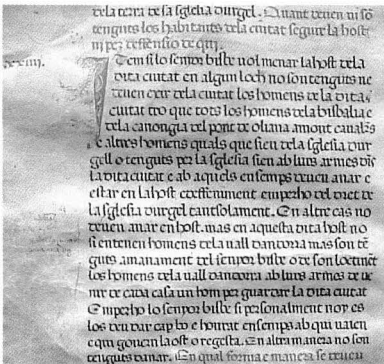 dela terra de sa sglesia durgel. Quant deuen ni son
tenguts los habitants dela ciutat seguir la host
ni per defensio de qui.
Item si lo senyor bisbe vol menar la host dela
dita ciutat en algun loch no son tenguts ne
deuen exir dela ciutat los homens de la dita
ciutat tro que tots los homens dela bisbalia e
dela canongia del pont de oliana amont canales
e altres homens quals que sien dela sglesia dur
gell o tenguts per la sglesia sien ab lurs armes dis
la dita ciutat e ab aquels ensemps deuen anar e
estar en la host e defeniment empero del dret de
la sglesia durgel tansolament. En altre cas no
deuen anar en host. mas en aquesta dita host no
si entenen homens dela vall dandorra mas son te
guts a manament del senyor bisbe o de son loctinet
los homens dela vall dandorra ab lurs armes de ue
nir de cada casa un hom per guardar la dita ciutat
Empero lo senyor bisbe si personalment noy es
los deu dar cap bo e honrat ensemps ab qui vaien
e qui gouern la ost o regesca. En altra manera no son
tenguts danar. En qual forma e manera se deuen